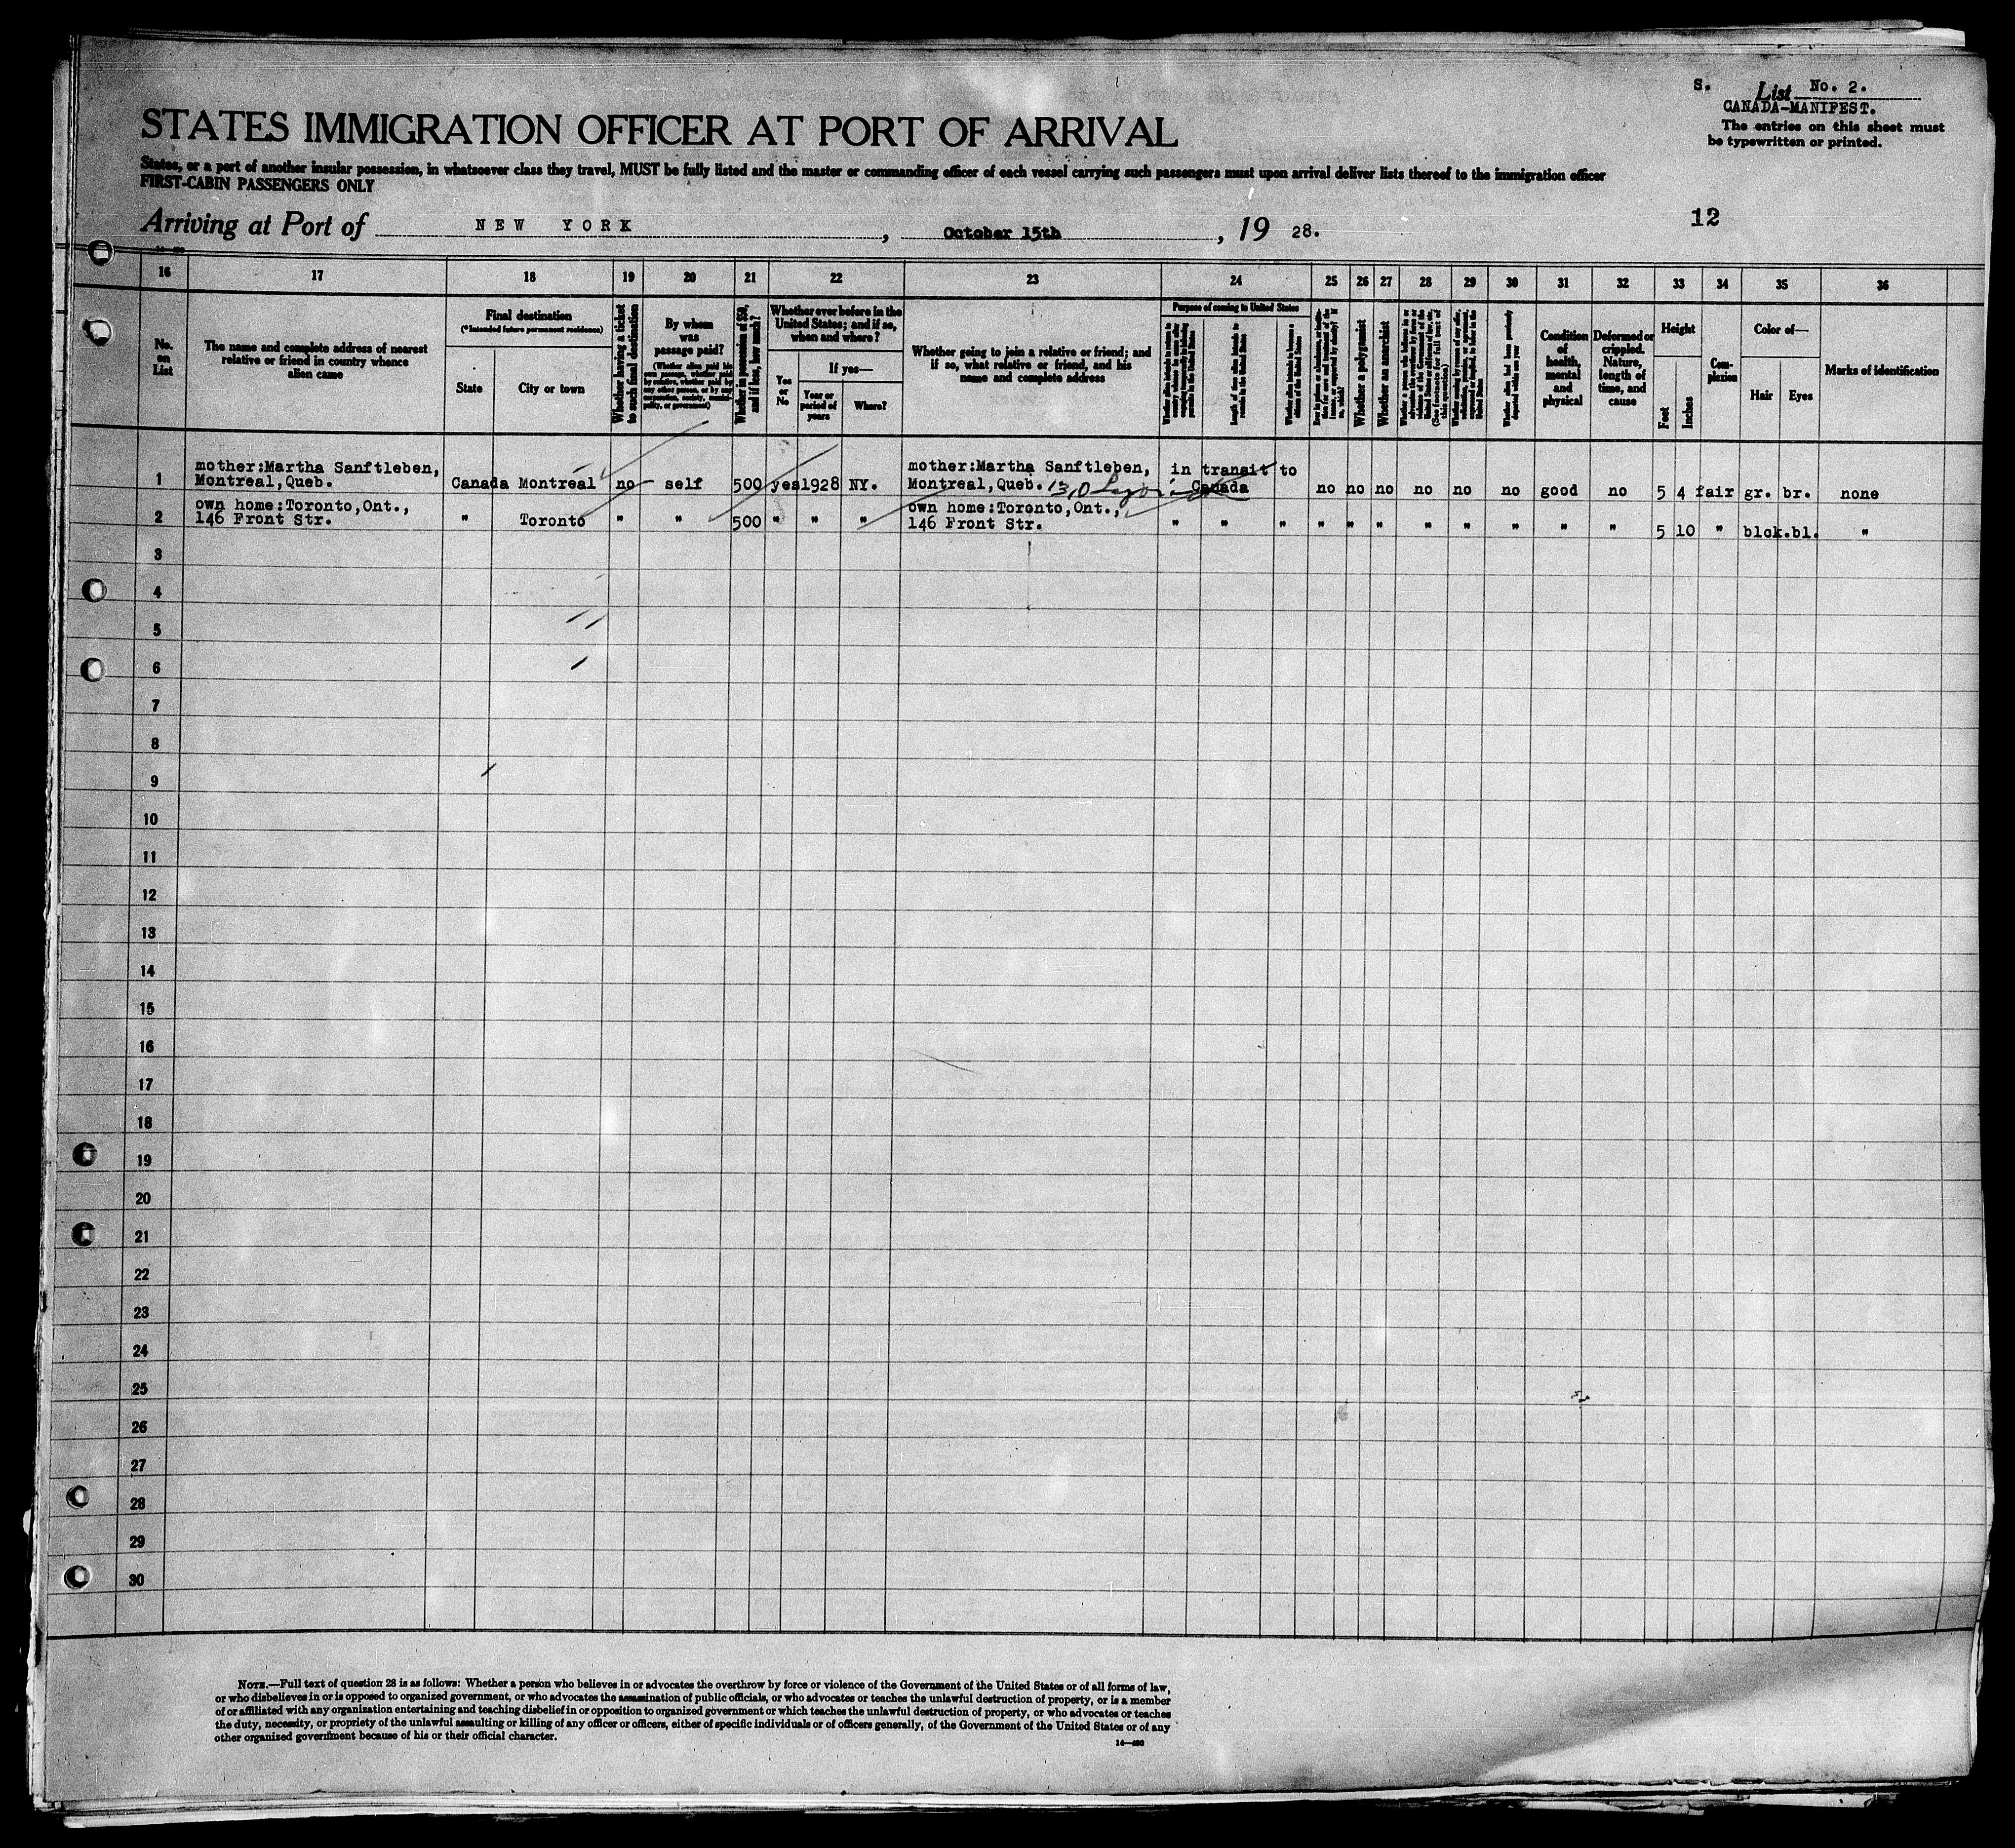 S. List No. 2.
CANADA-MANIFEST.
The entries on this sheet must
be typewritten or printed.
STATES IMMIGRATION OFFICER AT PORT OF ARRIVAL
States, or a port of another insular possession, in whatsoever class they travel, MUST be fully listed and the master or commanding officer of each vessel carrying such passengers must upon arrival deliver lists thereof to the immigration officer
FIRST-CABIN PASSENGERS ONLY
Arriving at Port of NEW YORK, October 15th, 19 28.
12
16 17 18 19 20 21 22 23 24 25 26 27 28 29 30 31 32 33 34 35 36
No.
on
List
The name and complete address of nearest
relative or friend in country whence
alien came
Final destination
(*Intended future permanent residence)
State
City or town
Whether having a ticket
to such final destination
By whom
was
passage paid?
(Whether alien paid his
own passage, whether paid
by relative, whether paid by
any other person, or by any
corporation, society, municipality, or government)
Whether in possession of $50,
and if less, how much?
Whether ever before in the
United States; and if so,
when and where?
Yes
or
No
If yes—
Year or
period of
years
Where?
Whether going to join a relative or friend; and
if so, what relative or friend, and his
name and complete address
Purpose of coming to United States
Length of time alien intends to
remain in the United States
Whether alien intends to become a
citizen of the United States
Whether a polygamist
Whether an anarchist
(See footnote for full text of
this question)
Whether alien had been previously
deported within one year
Condition
of
health,
mental
and
physical
Deformed or
crippled.
Nature,
length of
time, and
cause
Height
Feet
Inches
Com-
plexion
Color of—
Hair
Eyes
Marks of identification
1 mother:Martha Sanftleben,
Montreal, Queb. Canada Montreal no self 500 yes 1928 NY. mother:Martha Sanftleben,
Montreal, Queb. in transit to
Canada no no no no no no good no 5 4 fair gr. br. none
2 own home:Toronto,Ont.,
146 Front Str. " Toronto " " 500 " " " own home:Toronto,Ont.,
146 Front Str. " " " " " " " " " " " 5 10 " blck.bl. "
3
4
5
6
7
8
9
10
11
12
13
14
15
16
17
18
19
20
21
22
23
24
25
26
27
28
29
30
NOTE.—Full text of question 28 is as follows: Whether a person who believes in or advocates the overthrow by force or violence of the Government of the United States or of all forms of law,
or who disbelieves in or is opposed to organized government, or who advocates the assassination of public officials, or who advocates or teaches the unlawful destruction of property, or is a member
of or affiliated with any organization entertaining and teaching disbelief in or opposition to organized government or which teaches the unlawful destruction of property, or who advocates or teaches
the duty, necessity, or propriety of the unlawful assaulting or killing of any officer or officers, either of specific individuals or of officers generally, of the Government of the United States or of any
other organized government because of his or their official character.
14—480